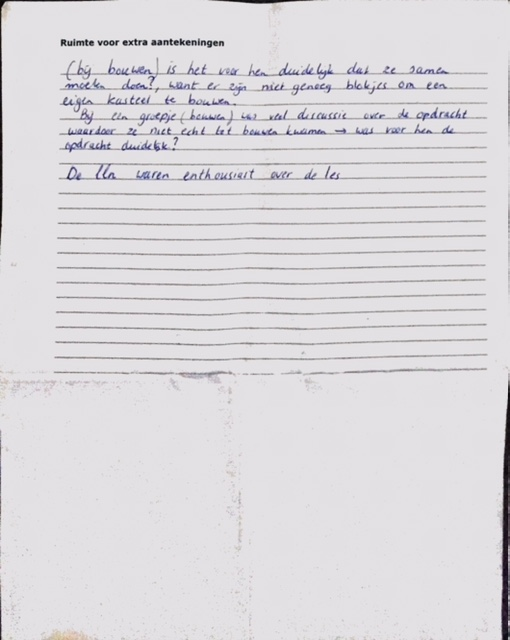 Ruimte voor extra aantekeningen
(bij bouwen) is het voor hen duidelijk dat ze samen
moeten doen?, want er zijn niet genoeg blokjes om een
eigen kasteel te bouwen.
Bij een groepje (bouwen) was veel discussie over de opdracht
waardoor ze niet echt tot bouwen kwamen → was voor hen de
opdracht duidelijk?
De lln waren enthousiast over de les